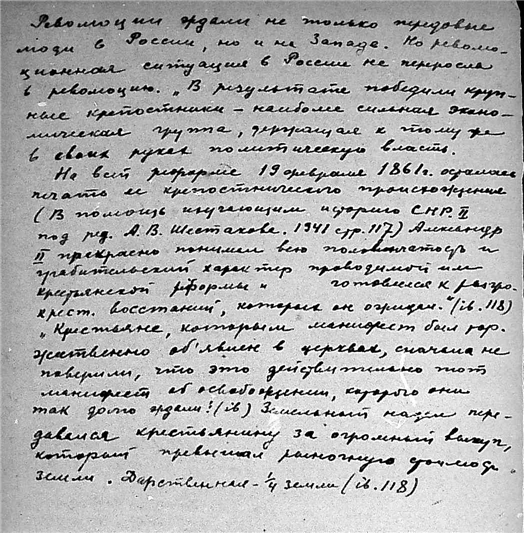 Революции ждали не только передовые
люди в России, но и на Западе. Но револю-
ционная ситуация в России не переросла
в революцию. „В результате победили круп-
ные крепостники – наиболее сильная эконо-
мическая группа, держащая к тому же
в своих руках политическую власть.
На всей реформе 19 февраля 1861 г. осталась
печать ее крепостнического происхождения
(В помощь изучающим историю СНР. II
под ред. А. В. Шестакова. 1941 стр. 117) Александр
II прекрасно понимал всю половинчатость и
грабительский характер проводимой им
крестьянской реформы и готовился к разгро-
крест. восстаний, которых он ожидал." (ib. 118)
„Крестьяне, которым манифест был тор-
жественно об'явлен в церквах, сначала не
поверили, что это действительно тот
манифест об освобождении, которого они
так долго ждали! (ib) Земельный надел пере-
давался крестьянину за огромный выкуп,
который превышал рыночную стоимость
земли. Дарственная - 1/4 земли (ib. 118)